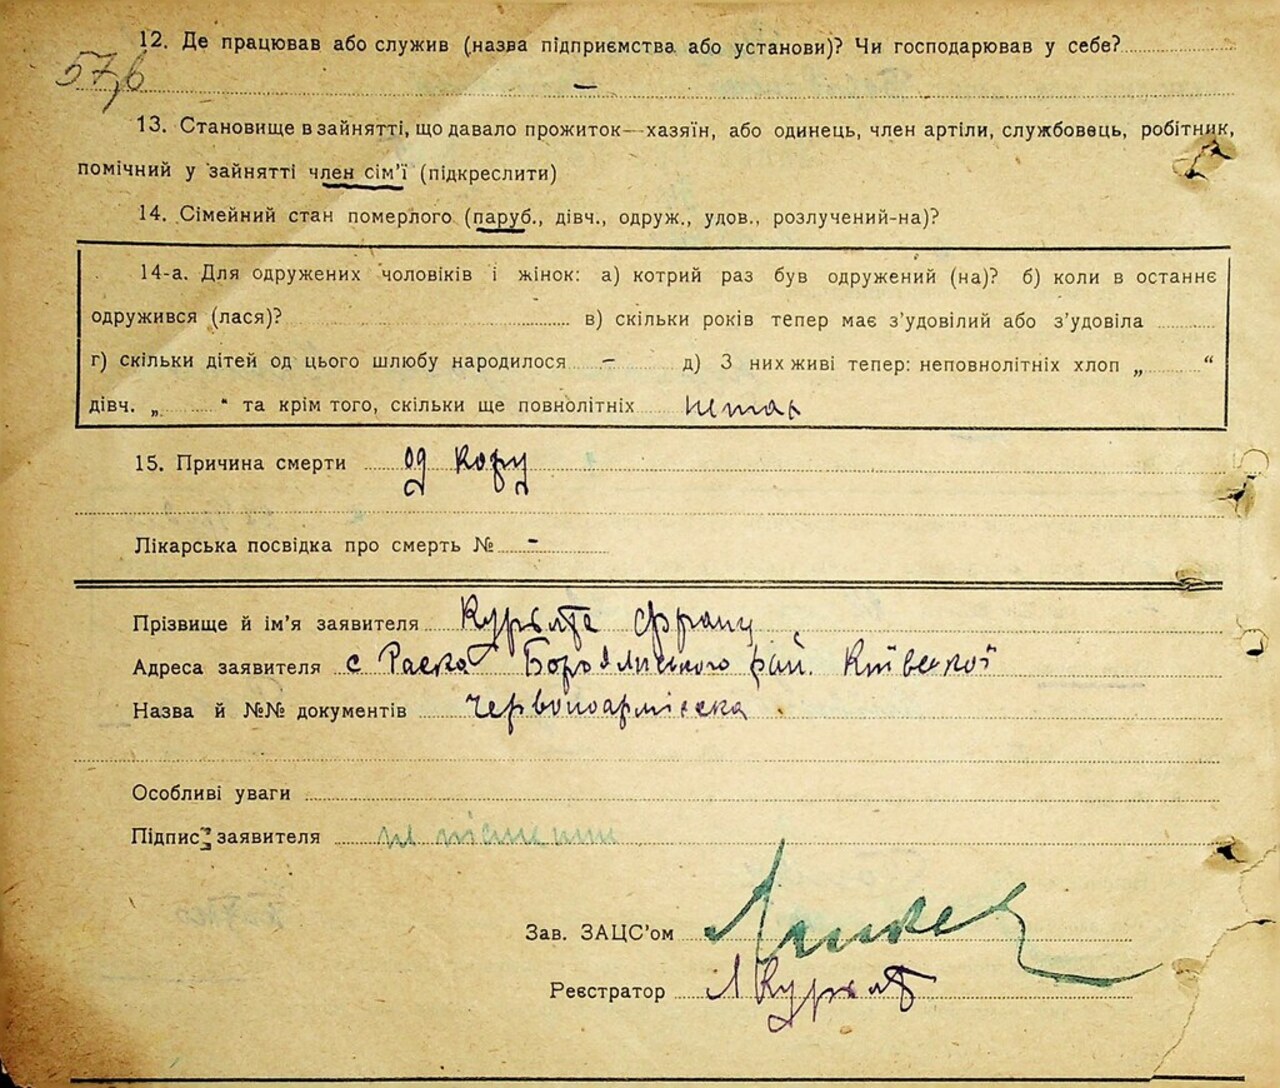 12. Де працював або служив (назва підприємства або установи)? Чи господарював у себе?
57,6
–
13. Становище в зайнятті, що давало прожиток—хазяїн, або одинець, член артіли, службовець, робітник,
помічний у зайнятті член сім'ї (підкреслити)
14. Сімейний стан померлого (паруб., дівч., одруж., удов., розлучений-на)?
14-а. Для одружених чоловіків і жінок: а) котрий раз був одружений (на)? б) коли в останнє
одружився (лася)? в) скільки років тепер має з'удовілий або з'удовіла
г) скільки дітей од цього шлюбу народилося – д) З них живі тепер: неповнолітніх хлоп „ “
дівч. „ “ та крім того, скільки ще повнолітніх
15. Причина смерти од кору
Лікарська посвідка про смерть № -
Прізвище й ім'я заявителя Франц
Адреса заявителя с Раска Бородянського рай. Київської
Назва й №№ документів
Особливі уваги
Підпис заявителя
Зав. ЗАЦС'ом
Реєстратор